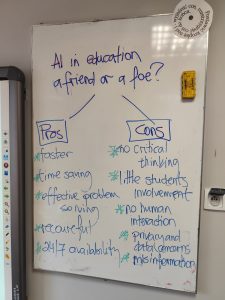 AI in education
a friend or a foe?
Pros
* faster
* time saving
* effective problem
solving
* recourceful
* 24/7 availability
Cons
* no critical
thinking
* little students
involvement
* no human
interaction
* privacy and
data concerns
* misinformation